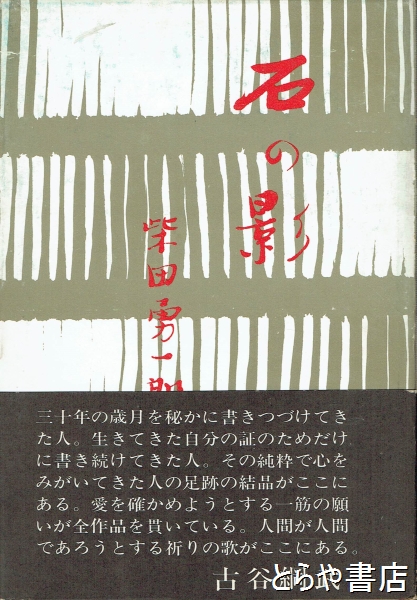 石の影
柴田勇一郎
三十年の歳月を秘かに書きつづけてき
た人。生きてきた自分の証のためだけ
に書き続けてきた人。その純粋で心を
みがいてきた人の足跡の結晶がここに
ある。愛を確かめようとする一筋の願
いが全作品を貫いている。人間が人間
であろうとする祈りの歌がここにある。
古谷綱武
とらや書店